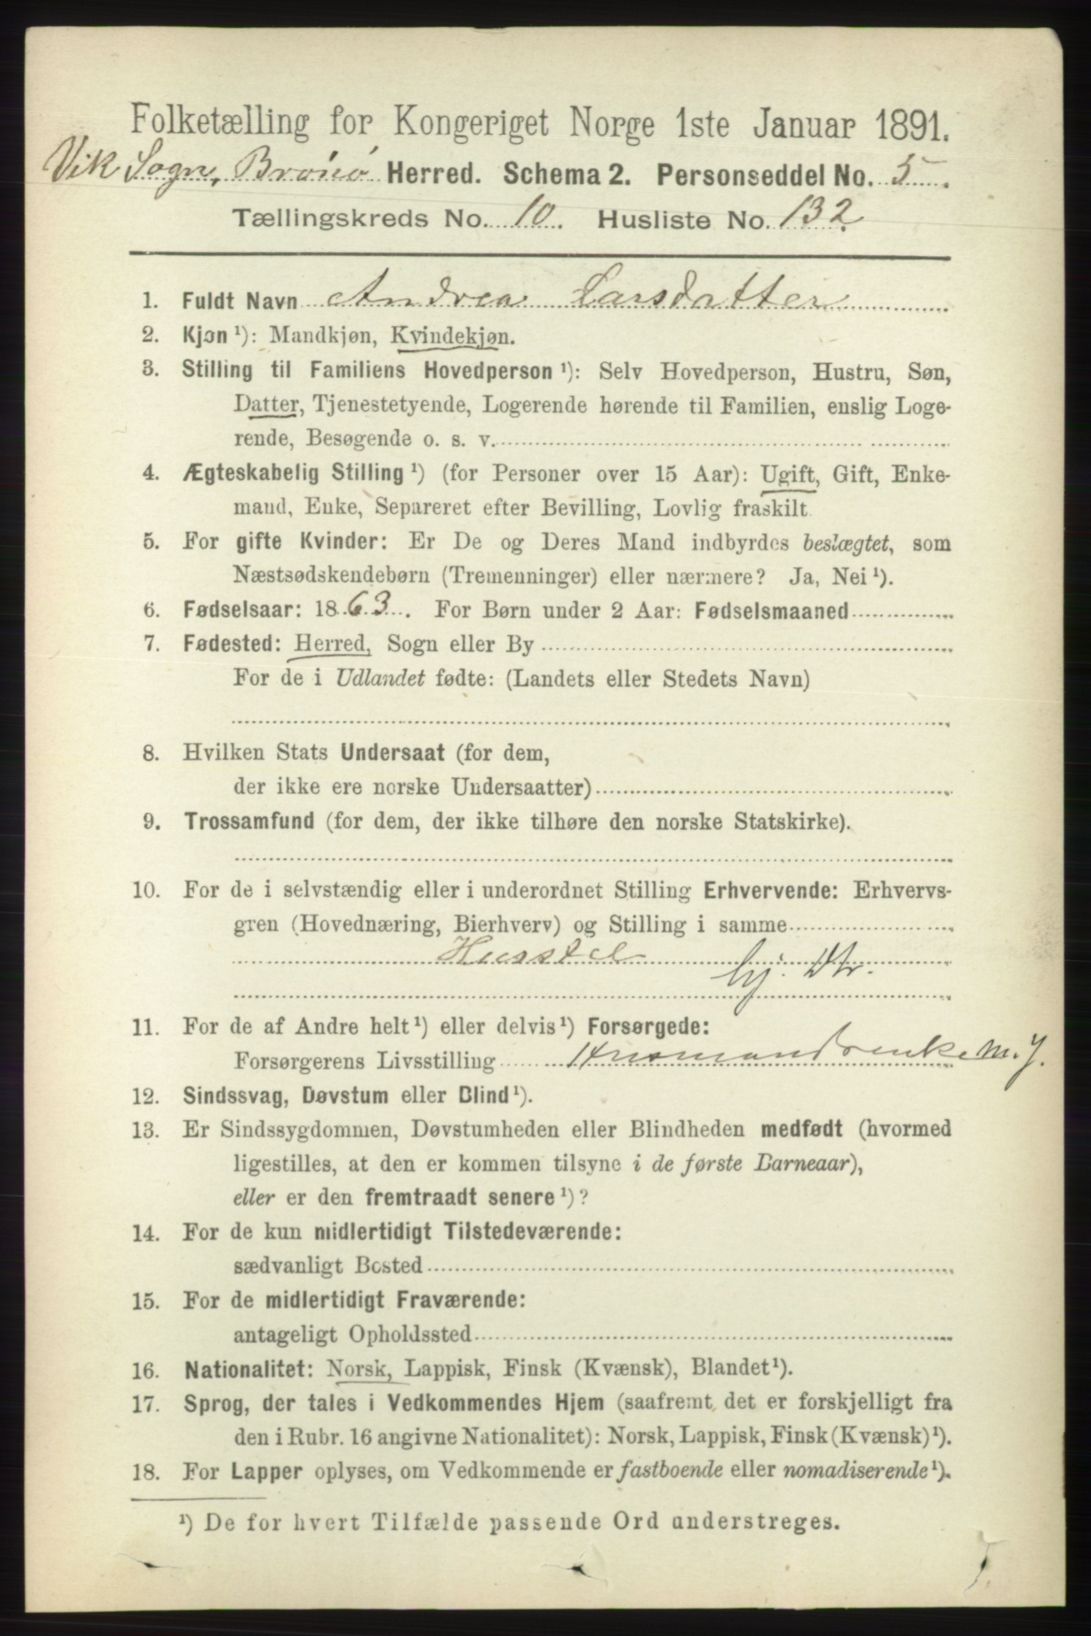 Folketælling for Kongeriget Norge 1ste Januar 1891.
Vik Sogn, Brønø Herred. Schema 2. Personseddel No. 5.
Tællingskreds No. 10. Husliste No. 132.
1. Fuldt Navn Andrea Larsdatter
2. Kjøn ¹): Mandkjøn, Kvindekjøn.
3. Stilling til Familiens Hovedperson ¹): Selv Hovedperson, Hustru, Søn,
Datter, Tjenestetyende, Logerende hørende til Familien, enslig Loge-
rende, Besøgende o. s. v.
4. Ægteskabelig Stilling ¹) (for Personer over 15 Aar): Ugift, Gift, Enke-
mand, Enke, Separeret efter Bevilling, Lovlig fraskilt
5. For gifte Kvinder: Er De og Deres Mand indbyrdes beslægtet, som
Næstsødskendebørn (Tremenninger) eller nærmere? Ja, Nei ¹).
6. Fødselsaar: 1863. For Børn under 2 Aar: Fødselsmaaned
7. Fødested: Herred, Sogn eller By
For de i Udlandet fødte: (Landets eller Stedets Navn)
8. Hvilken Stats Undersaat (for dem,
der ikke ere norske Undersaatter)
9. Trossamfund (for dem, der ikke tilhøre den norske Statskirke).
10. For de i selvstændig eller i underordnet Stilling Erhvervende: Erhvervs-
gren (Hovednæring, Bierhverv) og Stilling i samme
Husstel hj. Dtr.
11. For de af Andre helt ¹) eller delvis ¹) Forsørgede:
Forsørgerens Livsstilling Husmandsenke m. J.
12. Sindssvag, Døvstum eller Blind ¹).
13. Er Sindssygdommen, Døvstumheden eller Blindheden medfødt (hvormed
ligestilles, at den er kommen tilsyne i de første Barneaar),
eller er den fremtraadt senere ¹)?
14. For de kun midlertidigt Tilstedeværende:
sædvanligt Bosted
15. For de midlertidigt Fraværende:
antageligt Opholdssted
16. Nationalitet: Norsk, Lappisk, Finsk (Kvænsk), Blandet ¹).
17. Sprog, der tales i Vedkommendes Hjem (saafremt det er forskjelligt fra
den i Rubr. 16 angivne Nationalitet): Norsk, Lappisk, Finsk (Kvænsk) ¹).
18. For Lapper oplyses, om Vedkommende er fastboende eller nomadiserende ¹).
¹) De for hvert Tilfælde passende Ord understreges.